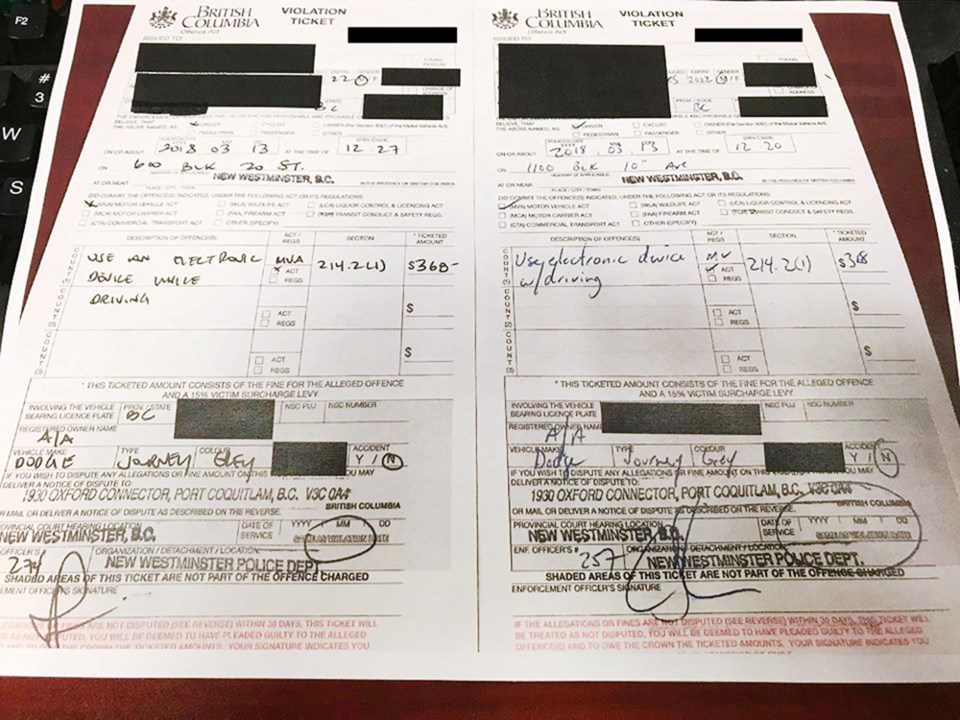 F2
#
3
W
S
BRITISH COLUMBIA
VIOLATION TICKET
Offence Act
ISSUED TO
22
BC
BELIEVE, THAT
THE ABOVE NAMED, AS
DRIVER
CYCLIST
PEDESTRIAN
PASSENGER
OTHER
ON OR ABOUT 2018 03 13 AT THE TIME OF 12 27
ON 600 BLK 20 ST.
AT OR NEAR NEW WESTMINSTER, B.C. IN THE PROVINCE OF BRITISH COLUMBIA
DID COMMIT THE OFFENCE(S) INDICATED, UNDER THE FOLLOWING ACT OR ITS REGULATIONS:
(MVA) MOTOR VEHICLE ACT (WLA) WILDLIFE ACT (LCA) LIQUOR CONTROL & LICENCING ACT
(MCA) MOTOR CARRIER ACT (FAA) FIREARM ACT TRANSIT CONDUCT & SAFETY REGS.
(CTA) COMMERCIAL TRANSPORT ACT OTHER (SPECIFY)
DESCRIPTION OF OFFENCE(S) ACT / REGS SECTION * TICKETED AMOUNT
COUNT (1)
USE AN ELECTRONIC MVA 214.2(1) $368-
DEVICE WHILE ACT
DRIVING REGS
COUNT (2)
ACT $
REGS
COUNT (3)
ACT $
REGS
* THIS TICKETED AMOUNT CONSISTS OF THE FINE FOR THE ALLEGED OFFENCE
AND A 15% VICTIM SURCHARGE LEVY.
INVOLVING THE VEHICLE PROV/STATE NSC PUJ NSC NUMBER
BEARING LICENCE PLATE BC
REGISTERED OWNER NAME
A/A
VEHICLE MAKE TYPE COLOUR ACCIDENT
DODGE JOURNEY GREY Y / N
IF YOU WISH TO DISPUTE ANY ALLEGATIONS OR FINE AMOUNT ON THIS YOU MAY
DELIVER A NOTICE OF DISPUTE TO:
1930 OXFORD CONNECTOR, PORT COQUITLAM, B.C. V3C 0A4
BRITISH COLUMBIA
OR MAIL OR DELIVER A NOTICE OF DISPUTE AS DESCRIBED ON THE REVERSE.
PROVINCIAL COURT HEARING LOCATION DATE OF SERVICE YYYY MM DD
NEW WESTMINSTER, B.C.
OFFICER'S ORGANIZATION / DETACHMENT / LOCATION
274 NEW WESTMINSTER POLICE DEPT.
SHADED AREAS OF THIS TICKET ARE NOT PART OF THE OFFENCE CHARGED
ENFORCEMENT OFFICER'S SIGNATURE
IF THE ALLEGATIONS OR FINES ARE NOT DISPUTED (SEE REVERSE) WITHIN 30 DAYS, THIS TICKET WILL
BE TREATED AS NOT DISPUTED, YOU WILL BE DEEMED TO HAVE PLEADED GUILTY TO THE ALLEGED
OFFENCE(S) AND TO OWE THE CROWN THE TICKETED AMOUNTS. YOUR SIGNATURE INDICATES YOU
BRITISH COLUMBIA
VIOLATION TICKET
Offence Act
ISSUED TO
2022
BC
BELIEVE, THAT
THE ABOVE NAMED, AS
DRIVER
CYCLIST
OWNER (Per Section 83(2) of the Motor Vehicle Act)
PEDESTRIAN
PASSENGER
OTHER
ON OR ABOUT 2018 03 13 AT THE TIME OF 12 20
ON 1100 BLK 10th AVE
AT OR NEAR NEW WESTMINSTER, B.C. IN THE PROVINCE OF BRITISH COLUMBIA
DID COMMIT THE OFFENCE(S) INDICATED, UNDER THE FOLLOWING ACT OR ITS REGULATIONS:
(MVA) MOTOR VEHICLE ACT (WLA) WILDLIFE ACT (LCA) LIQUOR CONTROL & LICENCING ACT
(MCA) MOTOR CARRIER ACT (FAA) FIREARM ACT TRANSIT CONDUCT & SAFETY REGS.
(CTA) COMMERCIAL TRANSPORT ACT OTHER (SPECIFY)
DESCRIPTION OF OFFENCE(S) ACT / REGS SECTION * TICKETED AMOUNT
COUNT (1)
Use electronic device MV 214.2(1) $368
w/ driving ACT
REGS
COUNT (2)
ACT $
REGS
COUNT (3)
ACT $
REGS
* THIS TICKETED AMOUNT CONSISTS OF THE FINE FOR THE ALLEGED OFFENCE
AND A 15% VICTIM SURCHARGE LEVY.
INVOLVING THE VEHICLE NSC PUJ NSC NUMBER
BEARING LICENCE PLATE
REGISTERED OWNER NAME
A/A
VEHICLE MAKE TYPE COLOUR ACCIDENT
Dodge Journey Grey Y / N
IF YOU WISH TO DISPUTE ANY ALLEGATIONS OR FINE AMOUNT ON THIS YOU MAY
DELIVER A NOTICE OF DISPUTE TO:
1930 OXFORD CONNECTOR, PORT COQUITLAM, B.C. V3C 0A4
BRITISH COLUMBIA
OR MAIL OR DELIVER A NOTICE OF DISPUTE AS DESCRIBED ON THE REVERSE.
PROVINCIAL COURT HEARING LOCATION DATE OF SERVICE YYYY MM DD
NEW WESTMINSTER, B.C.
ENF. OFFICER'S # ORGANIZATION / DETACHMENT / LOCATION
257 NEW WESTMINSTER POLICE DEPT.
SHADED AREAS OF THIS TICKET ARE NOT PART OF THE OFFENCE CHARGED
ENFORCEMENT OFFICER'S SIGNATURE
IF THE ALLEGATIONS OR FINES ARE NOT DISPUTED (SEE REVERSE) WITHIN 30 DAYS, THIS TICKET WILL
BE TREATED AS NOT DISPUTED, YOU WILL BE DEEMED TO HAVE PLEADED GUILTY TO THE ALLEGED
OFFENCE(S) AND TO OWE THE CROWN THE TICKETED AMOUNTS. YOUR SIGNATURE INDICATES YOU